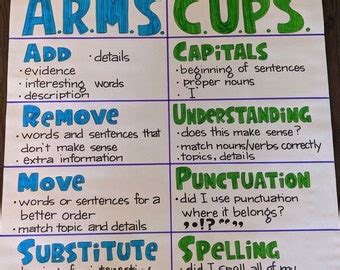 A.R.M.S.
C.U.P.S.
ADD • details
• evidence
• interesting words
• description
CAPITALS
• beginning of sentences
• proper nouns
• I
REMOVE
• words and sentences that
don't make sense
• extra information
UNDERSTANDING
• does this make sense?
• match nouns/verbs correctly
• topics, details
MOVE
• words or sentences for a
better order
• match topic and details
PUNCTUATION
• did I use punctuation
where it belongs?
SUBSTITUTE
SPELLING
• did I spell all of my